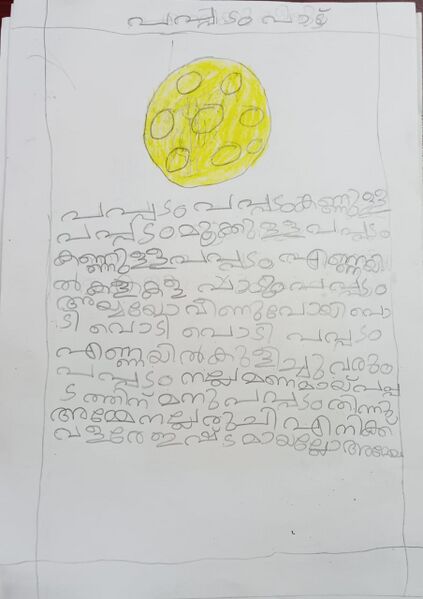 പപ്പടം പാട്ട്
പപ്പടം പപ്പടംകണ്ണുള്ള
പപ്പടം മൂക്കുള്ള പപ്പടം
കണ്ണുള്ള പപ്പടം എണ്ണയി
ൽ കളകള പാടും പപ്പടം
അയ്യയോ വീണുപോയി പൊ
ടി പൊടി പൊടി പപ്പടം
എണ്ണയിൽ കുളിച്ചു വരും
പപ്പടം നല്ല മണമായ് പപ്പ
ടത്തിന് മനു പപ്പടം തിന്നു
അമ്മേ നല്ല രുചി എനിക്ക്
വളരേഇഷ്ടമായല്ലോ അമ്മേ